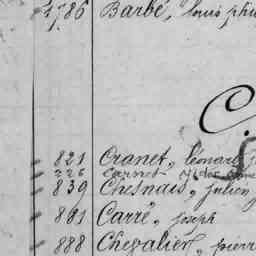 1786 Barbé, louis
1.
C.
821 Cranet, léonard
226 Carnet
839 Chesnais, julien
861 Carré, joseph
888 Chevalier, pierre